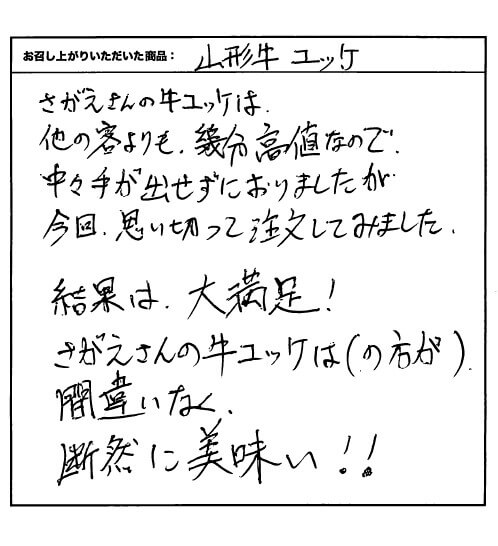 お召し上がりいただいた商品： 山形牛 ユッケ
さがえさんの牛ユッケは、
他の客よりも、幾分高値なので、
中々手が出せずにおりましたが
今回、思い切って注文してみました。
結果は、大満足！
さがえさんの牛ユッケは（の方が）、
間違いなく、
断然に美味い！！